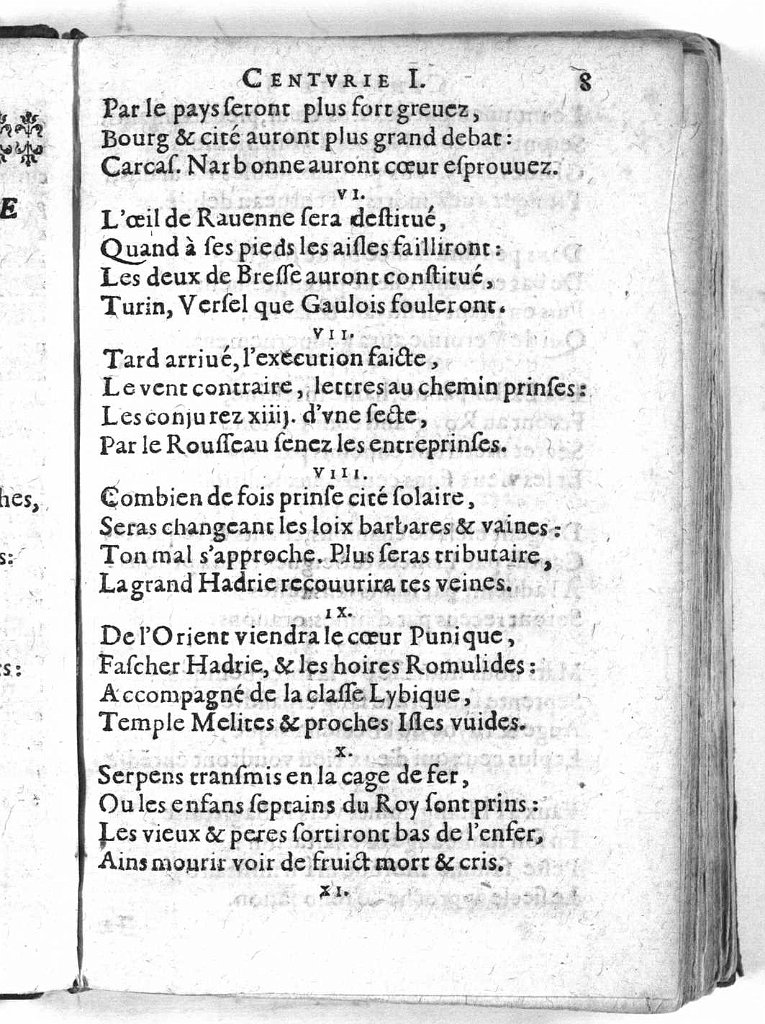 E
hes,
s:
rs:
CENTVRIE I. 8
Par le pays ſeront plus fort greuez,
Bourg & cité auront plus grand debat:
Carcaſ. Narbonne auront cœur eſprouuez.
VI.
L'œil de Rauenne ſera deſtitué,
Quand à ſes pieds les aiſles failliront:
Les deux de Breſſe auront conſtitué,
Turin, Verſel que Gaulois fouleront.
VII.
Tard arriué, l'execution faicte,
Le vent contraire, lettres au chemin prinſes:
Les conjurez xiiij. d'vne ſecte,
Par le Rouſſeau ſenez les entreprinſes.
VIII.
Combien de fois prinſe cité ſolaire,
Seras changeant les loix barbares & vaines:
Ton mal s'approche. Plus ſeras tributaire,
La grand Hadrie recouurira tes veines.
IX.
De l'Orient viendra le cœur Punique,
Faſcher Hadrie, & les hoires Romulides:
Accompagné de la claſſe Lybique,
Temple Melites & proches Iſles vuides.
X.
Serpens tranſmis en la cage de fer,
Ou les enfans ſeptains du Roy ſont prins:
Les vieux & peres ſortiront bas de l'enfer,
Ains mourir voir de fruict mort & cris.
XI.